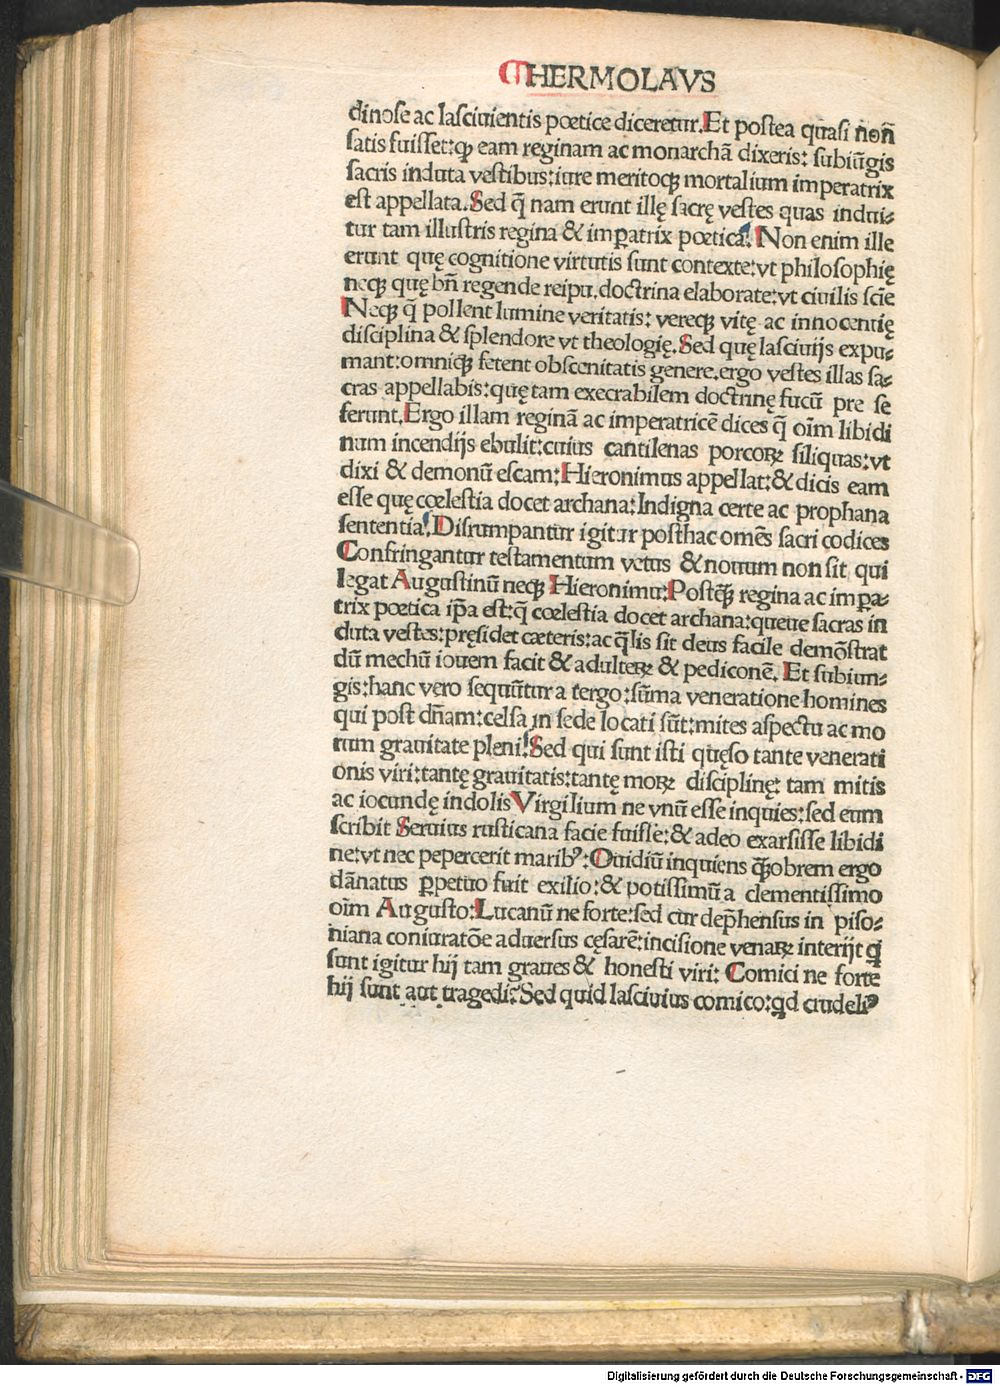 HERMOLAVS
dinose ac lasciuientis poetice diceretur. Et postea quasi non̄
satis fuisset: ꝙ eam reginam ac monarchā dixeris: subiūgis
sacris induta vestibus: iure meritoqꝫ mortalium imperatrix
est appellata. Sed q̄ nam erunt illę sacrę vestes quas indui⸗
tur tam illustris regina & imꝑatrix poetica. Non enim ille
erunt quę cognitione virtutis sunt contexte: vt philosophię
neqꝫ quę bn̄ regende reipu. doctrina elaborate: vt ciuilis scīe
Neqꝫ q̄ pollent lumine veritatis: vereqꝫ vitę ac innocentię
disciplina & splendore vt theologię. Sed quę lasciuijs expu⸗
mant: omniqꝫ fetent obscenitatis genere. ergo vestes illas sa⸗
cras appellabis: quę tam execrabilem doctrinę fucū pre se
ferunt. Ergo illam reginā ac imperatricē dices q̄ oīm libidi
num incendijs ebulit: cuius cantilenas porcoꝝ siliquas: vt
dixi & demonū escam: Hieronimus appellat: & dicis eam
esse quę cœlestia docet archana: Indigna certe ac prophana
sententia! Disrumpantur igitur posthac omēs sacri codices
Confringantur testamentum vetus & nouum non sit qui
legat Augustinū neqꝫ Hieronimū: Postqꝫ̄ regina ac imꝑa⸗
trix poetica ip̄a est: q̄ cœlestia docet archana: queue sacras in
duta vestes: pręsidet cæteris: ac q̄lis sit deus facile demōstrat
dū mechū iouem facit & adulteꝝ & pediconē. Et subiun⸗
gis: hanc vero sequūtur a tergo: sūma veneratione homines
qui post dn̄am: celsa in sede locati sūt: mites aspectu ac mo
rum grauitate pleni! Sed qui sunt isti quęso tante venerati
onis viri: tantę grauitatis: tantę moꝝ disciplinę: tam mitis
ac iocundę indolis Virgilium ne vnū esse inquies: sed eum
scribit Seruius rusticana facie fuisse: & adeo exarsisse libidi
ne: vt nec pepercerit maribꝰ: Ouidiū inquiens qꝫ̄obrem ergo
dānatus ꝑpetuo fuit exilio: & potissimū a clementissimo
oīm Augusto: Lucanū ne forte: sed cur dep̄hensus in piso⸗
niana coniuratōe aduersus cęsarē: incisione venaꝝ interijt q
sunt igitur hij tam graues & honesti viri: Comici ne forte
hij sunt aut tragedi? Sed quid lasciuius comico: qd crudeliꝰ
Digitalisierung gefördert durch die Deutsche Forschungsgemeinschaft - DFG